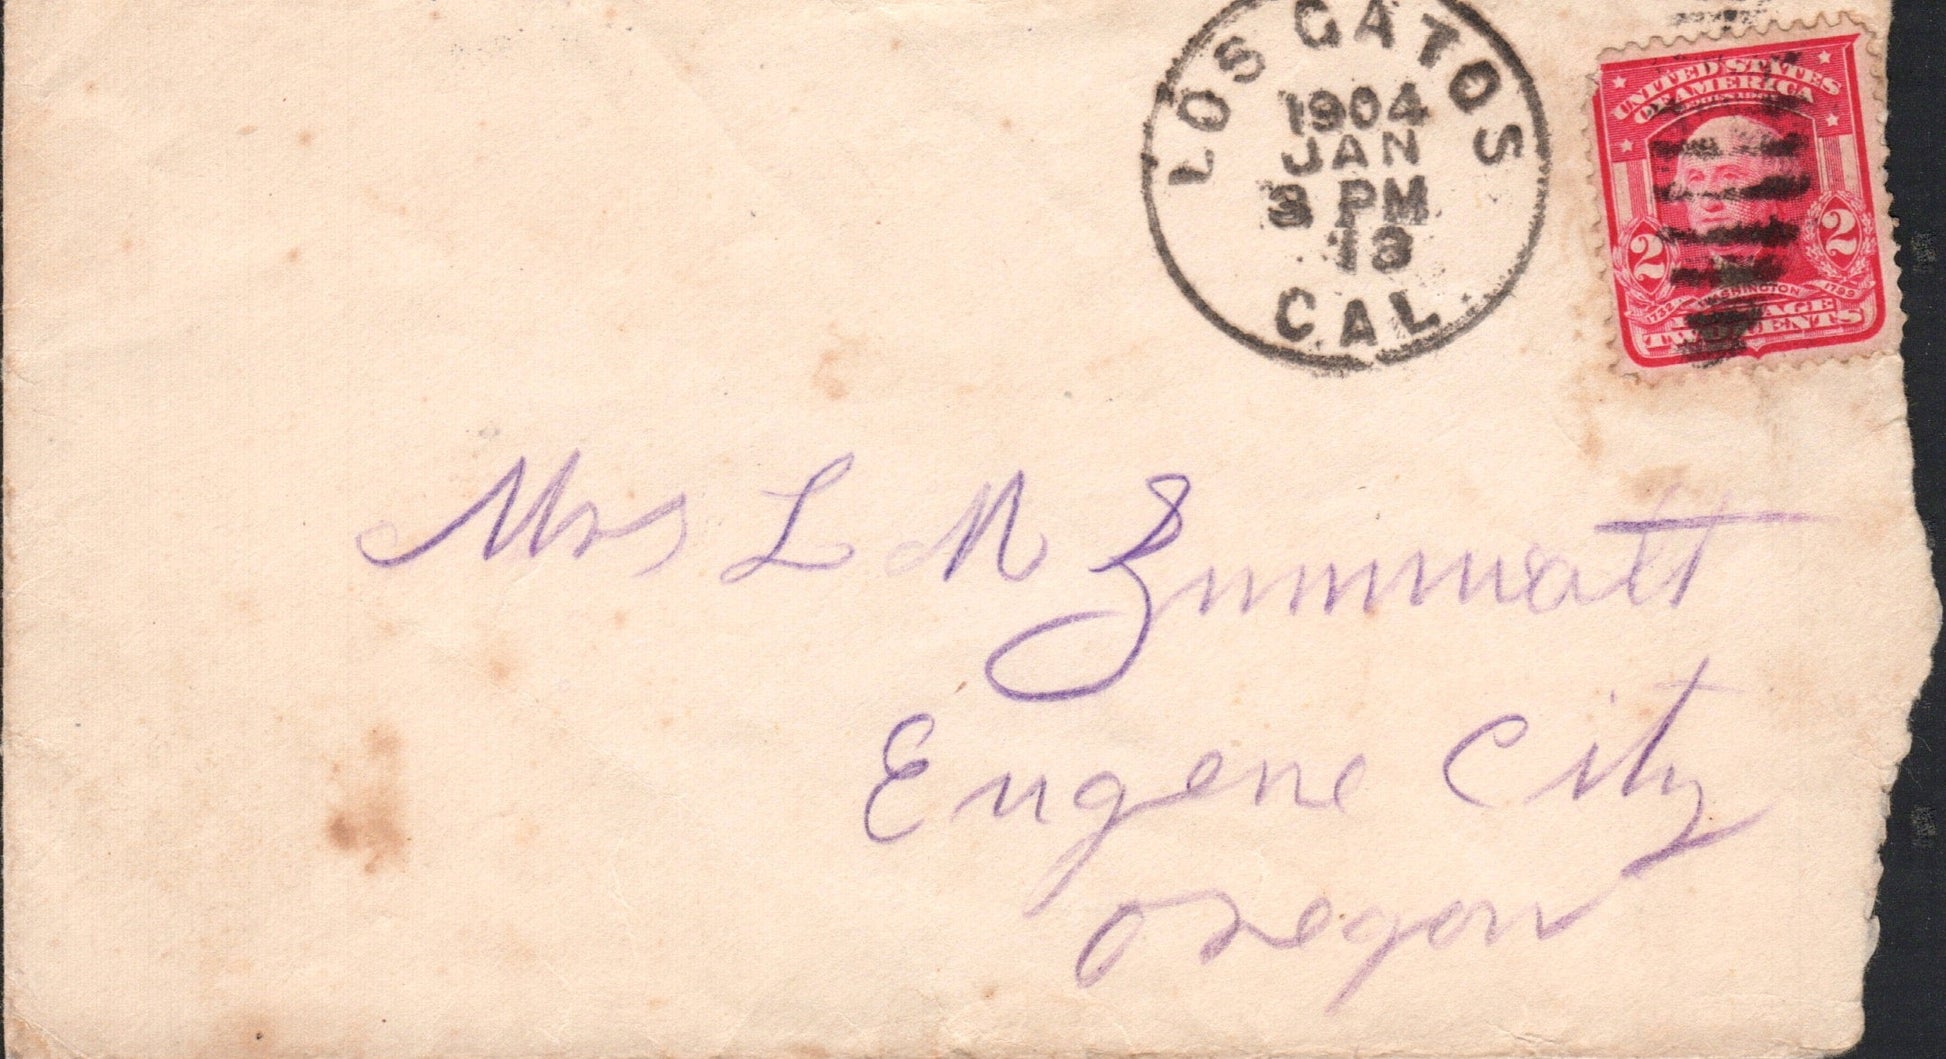 LOS GATOS
1904
JAN
3 PM
13
CAL.
UNITED STATES
OF AMERICA
2 2
1732 WASHINGTON 1799
POSTAGE
TWO CENTS
Mrs L M Zumwatt
Eugene City
Oregon